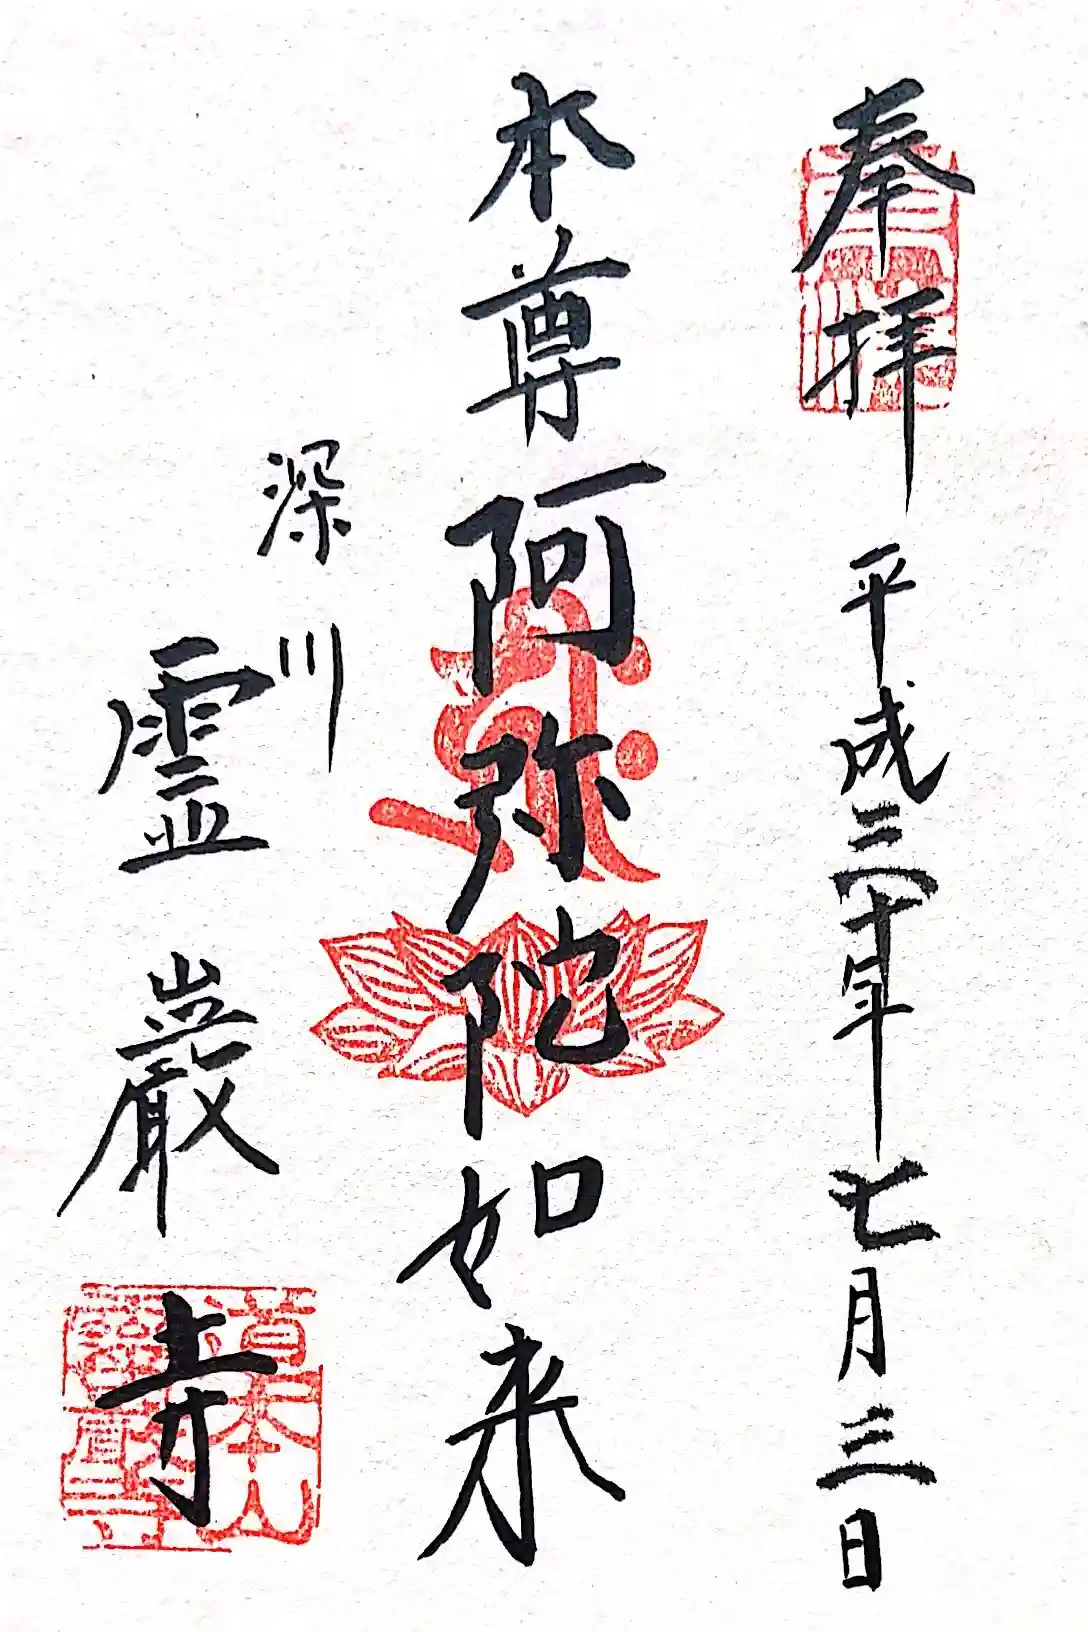 奉拝
平成三十年七月三日
本尊阿弥陀如来
深川
霊巌寺
道本山